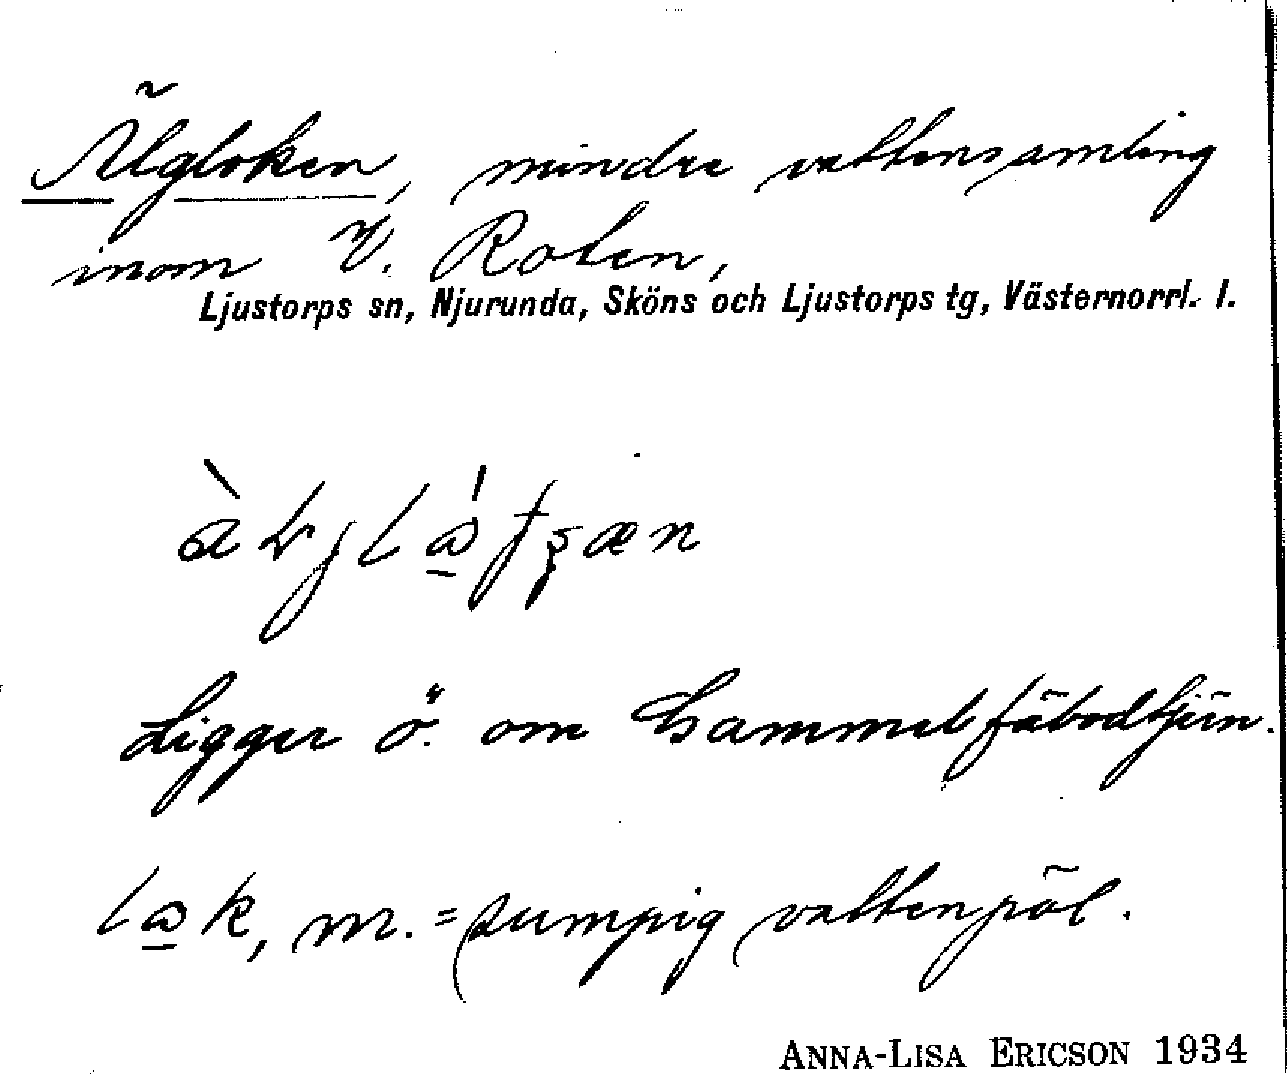 Älgloken, mindre vattensamling
inom V. Roten,
Ljustorps sn, Njurunda, Sköns och Ljustorps tg, Västernorrl. l.
Ligger ö. om Gammelfäbodtjärn.
lak, m. = sumpig vattenpöl.
ANNA-LISA ERICSON 1934